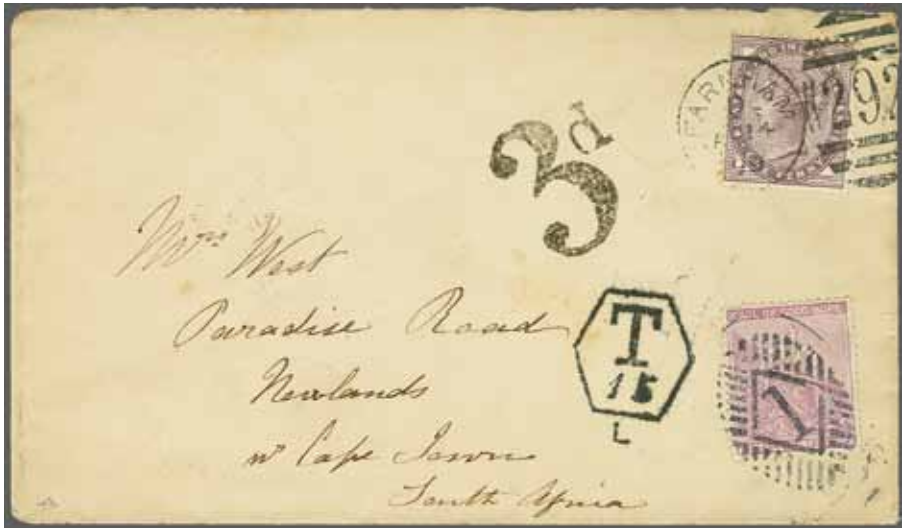 FARNHAM
292
3d
Mrs West
Paradise Road
Newlands
nr Cape Town
South Africa
T
15
L
1